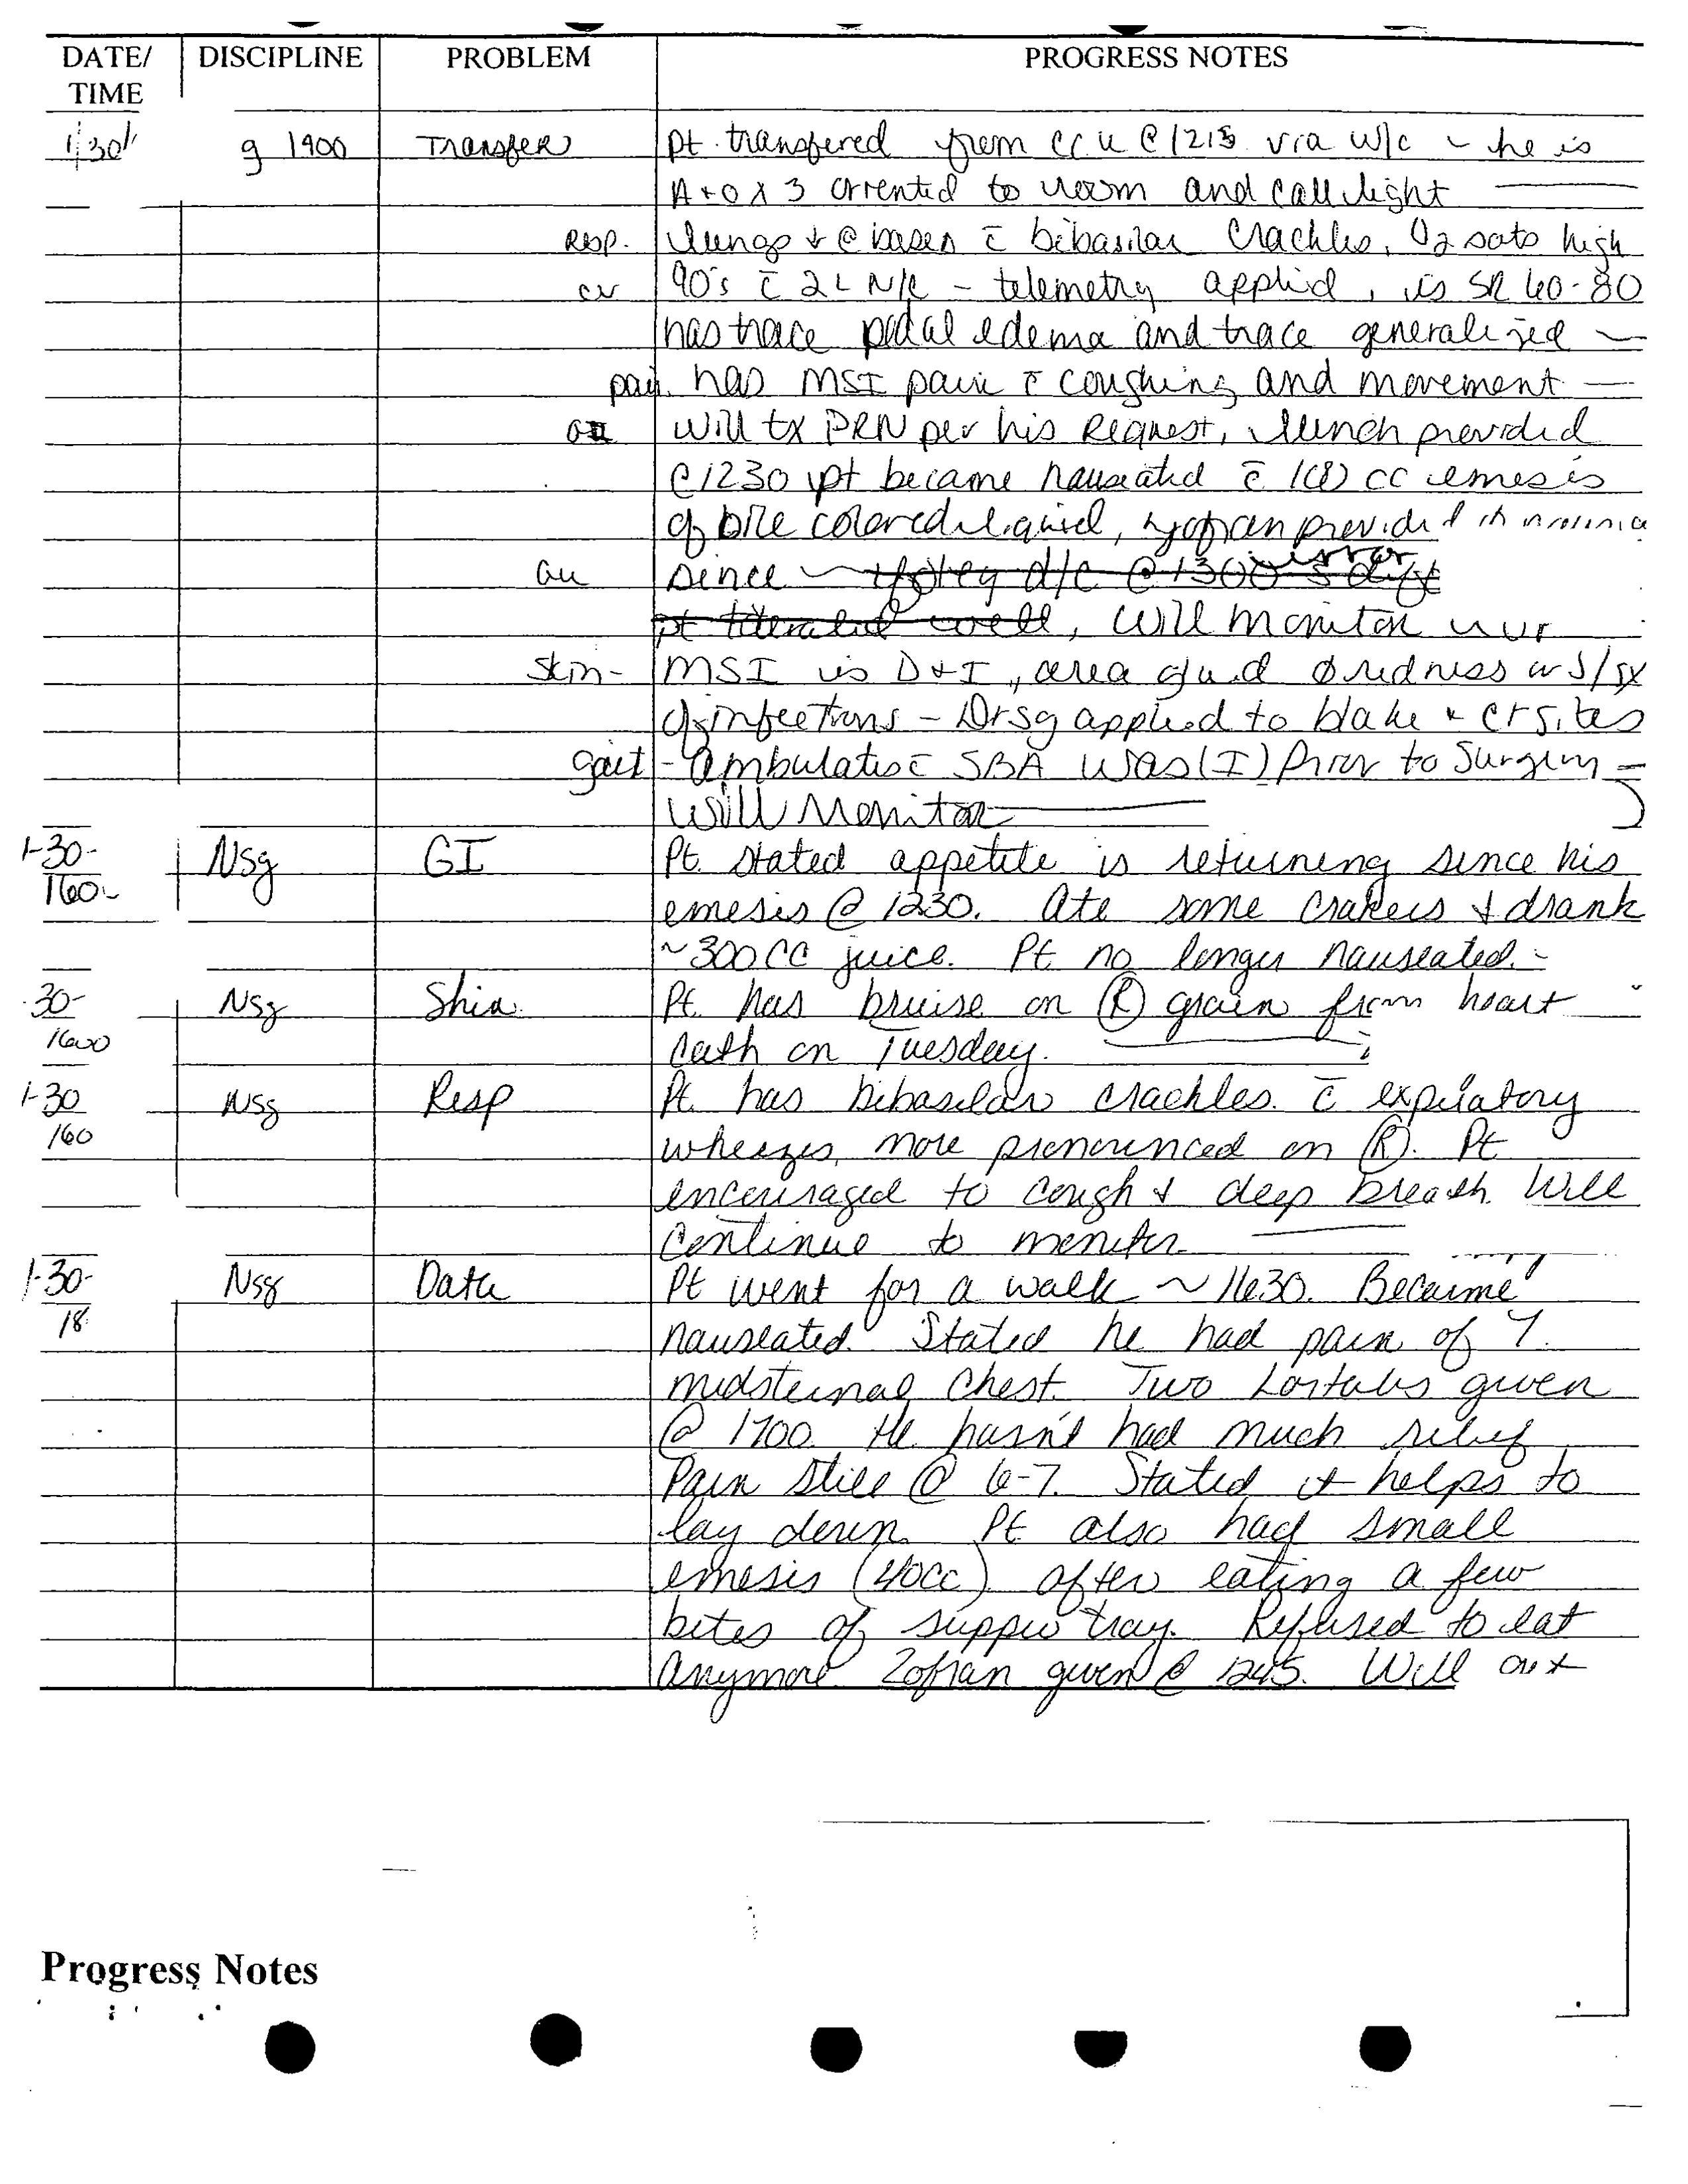 DATE/ TIME DISCIPLINE PROBLEM PROGRESS NOTES
1/30/ g 1900 Transfer pt. transfered from CCU @ 1215 via w/c - he is
A+O x 3 orrented to room and call light
Resp. lungs ↓ @ bases c̄ bibasilar crackles, O2 sats high
cv 90's c̄ 2L N/C - telemetry applied, is SR 60-80
has trace pedal edema and trace generalized
pain has MSI pain c̄ coughing and movement
GI will tx PRN per his request, lunch provided
@ 1230 pt became nauseated c̄ cc emesis
of bile colored liquid, zofran provided
GU since - foley d/c @ 1300 error
pt tolerated well, will monitor
Skin- MSI is D+I, area Ø redness or s/sx
of infections - Drsg applied to blake + ct sites
gait - ambulates c̄ SBA was (I) prior to surgery
will monitor
1-30- 160 Nsg GI Pt. stated appetite is returning since his
emesis @ 1230. Ate some crakers & drank
~300cc juice. Pt no longer nauseated.
30- 1600 Nsg Skin Pt. has bruise on (R) groin from heart
cath on Tuesday.
1-30 160 Nsg Resp Pt. has bibasilar crackles. c̄ expiratory
wheezes, more pronounced on (R). Pt
encouraged to cough & deep breath. Will
continue to monitor
1-30- 18 Nsg Data Pt went for a walk ~1630. Became
nauseated. Stated he had pain of 7.
midsternal chest. Two Lortabs given
@ 1700. He hasn't had much relief.
Pain still @ 6-7. Stated it helps to
lay down. Pt also had small
emesis (40cc) after eating a few
bites of supper tray. Refused to eat
anymore. Zofran given @ 1245. Will
Progress Notes